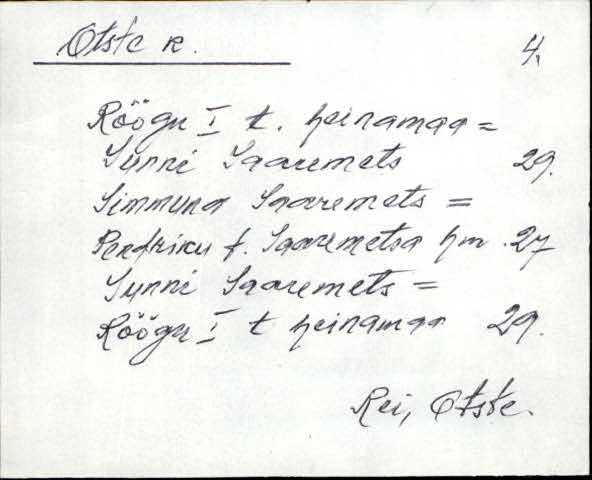 Otste k.
4.
Röögu I t. heinamaa =
Sünni Saaremets 29.
Simmuna Saaremets =
Pendriku t. Saaremetsa hm. 27
Sünni Saaremets =
Röögu I t heinamaa 29.
Rei, Otste.